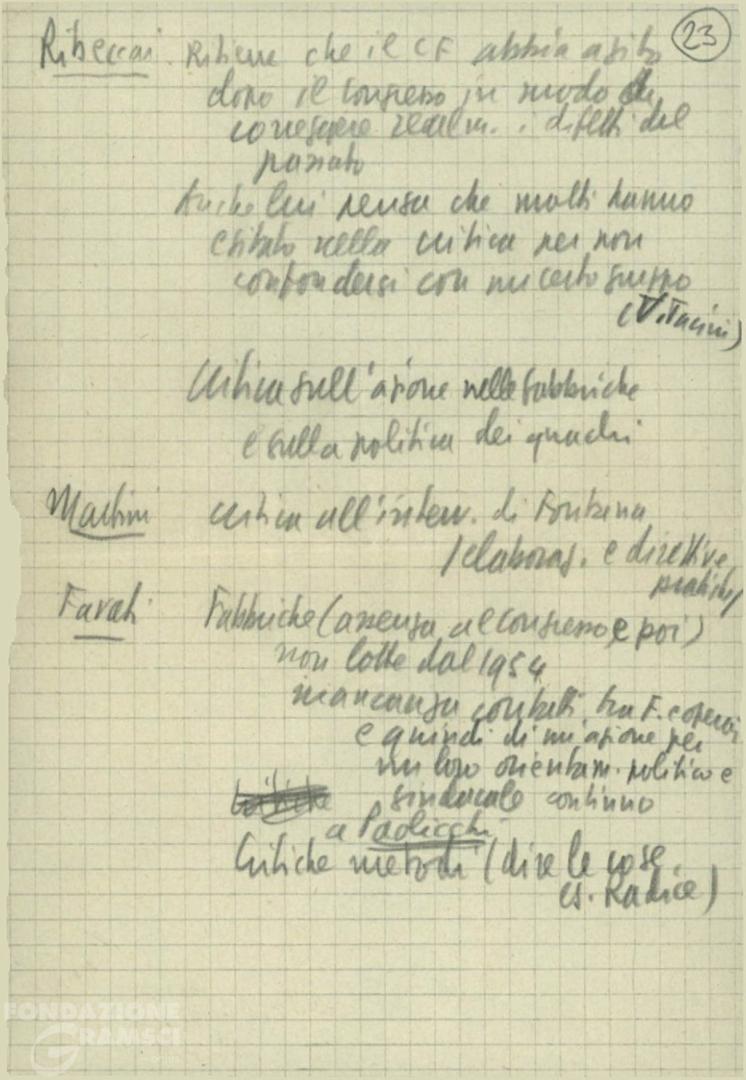 23
Ribeccai Ritiene che il CF abbia agito
dopo il congresso in modo di
correggere realm. i difetti del
passato
Anche lui pensa che molti hanno
esitato nella critica per non
confondersi con un certo gruppo
(Vitacini)
Critica sull'azione nelle fabbriche
e sulla politica dei quadri
Martini critica all'interv. di Fontana
/elaboraz. e direttive
pratiche/
Favati Fabbriche (assenza al congresso e poi)
non lotte dal 1954
mancanza contatti tra F. e operai
e quindi di un'azione per
un loro orientam. politico e
sindacale continuo
a Paolicchi
Critiche metodi (dire le cose
es. Radice)
FONDAZIONE
GRAMSCI